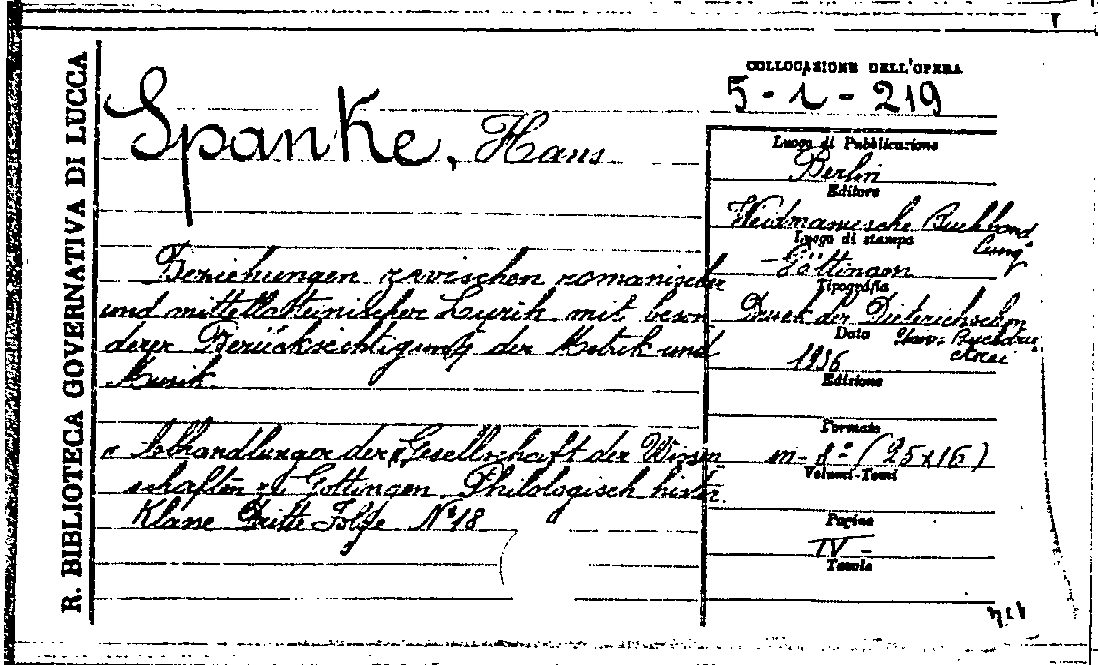 R. BIBLIOTECA GOVERNATIVA DI LUCCA
COLLOCAZIONE DELL'OPERA
5-1-219
Spanke, Hans
Beziehungen zwischen romanischer
und mittellateinischer Lyrik mit beson
derer Berücksichtigung der Metrik und
Musik.
Abhandlungen der Gesellschaft der Wissen
schaften zu Göttingen Philologisch histor.
Klasse Dritte Folge N° 18
Luogo di Pubblicazione
Berlin
Editore
Weidmannsche Buchhand
lung
Luogo di stampa
Göttingen
Tipografia
Druck der Dieterichschen
Univ. Buchdru
ckrei
Data
1936
Edizione
Formato
in-8° (25x16)
Volumi-Tomi
Pagine
IV -
Tavole